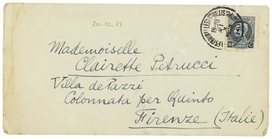 20-10-28
Mademoiselle
Clairette Petrucci
Villa de Pazzi
Colonnata per Quinto
Firenze (Italie)